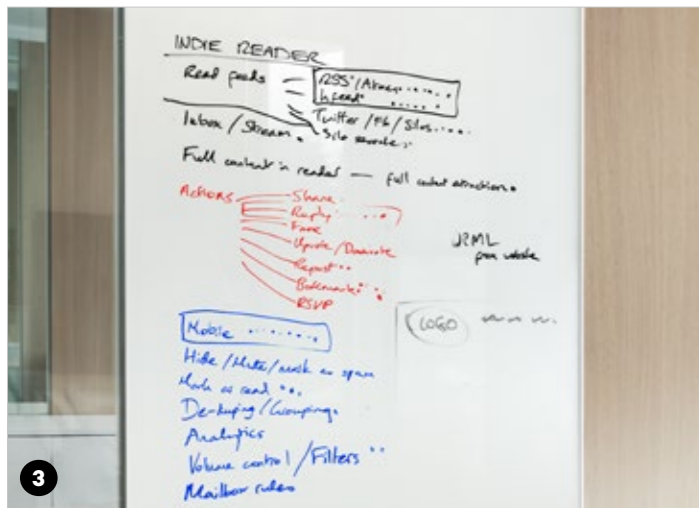 INDIE READER
Read feeds
RSS/Atom
hfeed
Twitter/FB/Silos
Silo search
Inbox/Stream
Full content in reader — full content extraction
Actions
Share
Reply
Fave
Upvote/Downvote
Repost
Bookmark
RSVP
from website
LOGO
Mobile
Hide/Mute/mark as spam
Mark as read
De-duping/Grouping
Analytics
Volume control/Filters
Mailbox rules
3